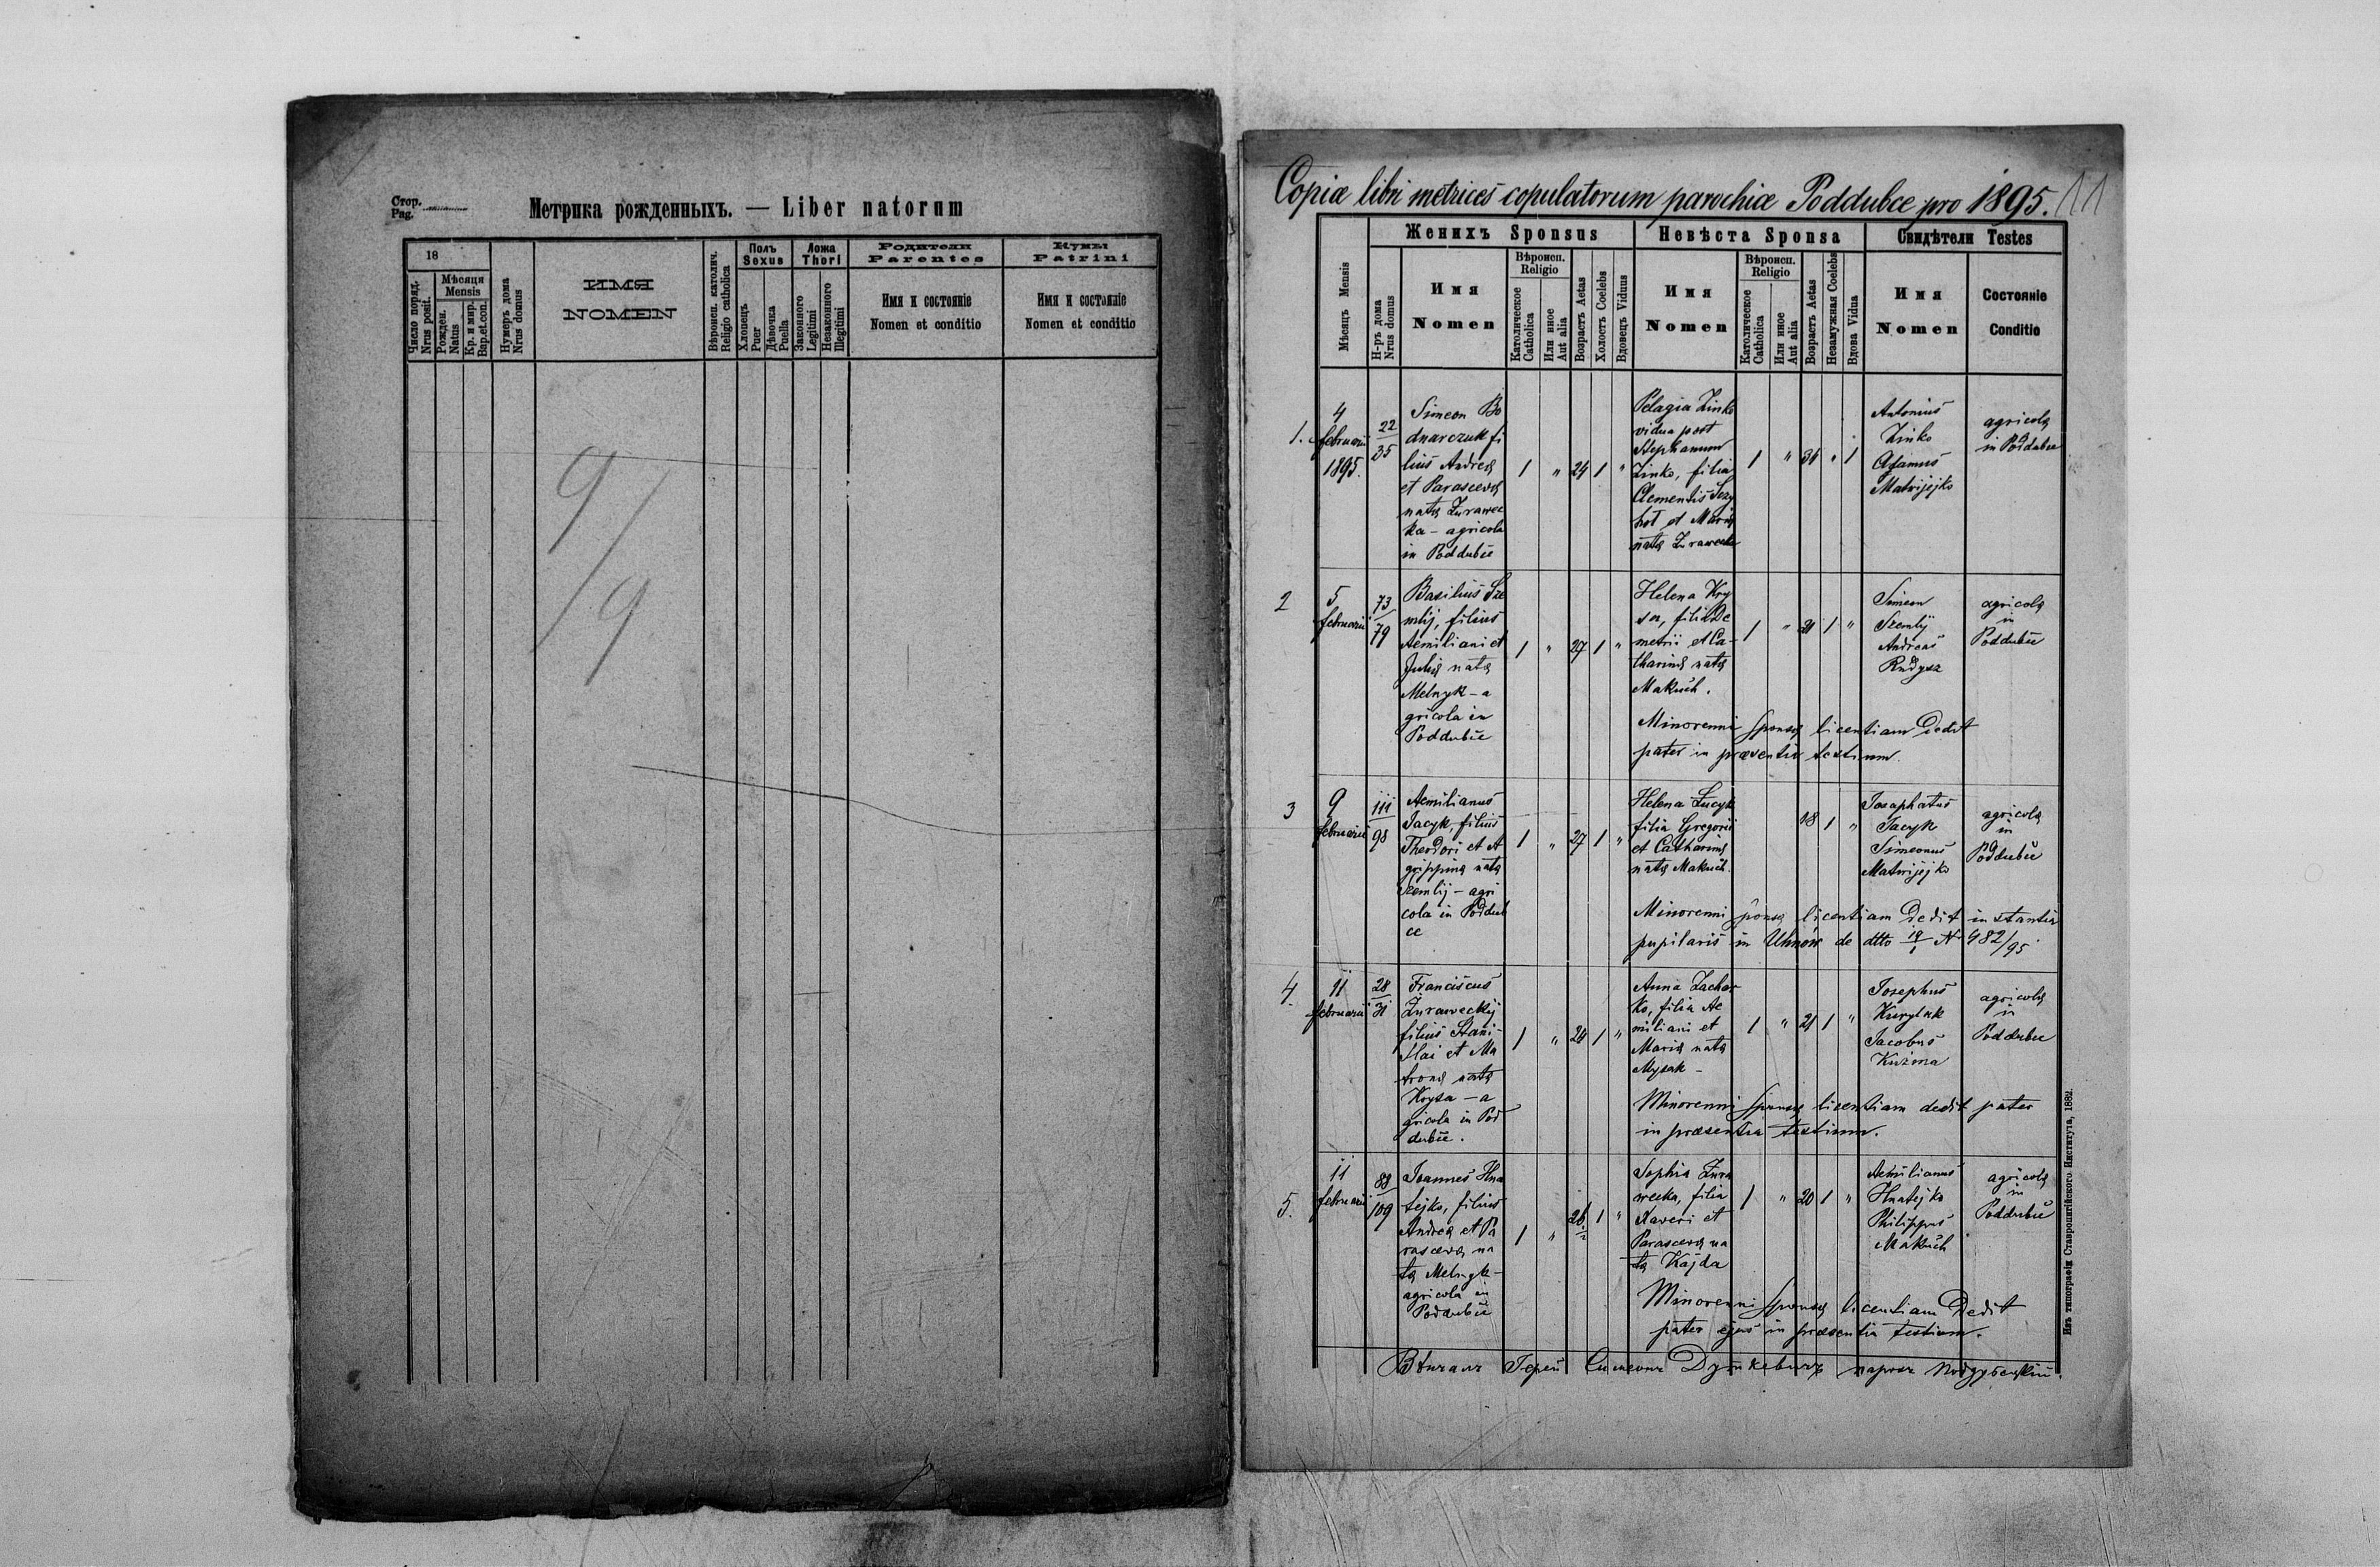 Стор.
Pag.
Метрика рожденныхъ. — Liber natorum
18
Число поряд.
Nrus posit.
Мѣсяця
Mensis
Рожден.
Natus
Кр. и мир.
Bap.et.con.
Нумеръ дома
Nrus domus
ИМЯ
NOMEN
Вѣроисп. католич.
Religio catholica
Полъ
Sexus
Хлопецъ
Puer
Дѣвочка
Puella
Ложа
Thori
Законного
Legitimi
Незаконного
Illegitimi
Родители
Parentes
Имя и состояніе
Nomen et conditio
Кумы
Patrini
Имя и состояніе
Nomen et conditio
9/9
Copia libri metrices copulatorum parochiæ Poddubce pro 1895.
11
Женихъ Sponsus
Невѣста Sponsa
Свидѣтели Testes
Мѣсяцъ Mensis
Н-ръ дома
Nrus domus
Имя
Nomen
Вѣроисп.
Religio
Католическое
Catholica
Или иное
Aut alia
Возрастъ Aetas
Холостъ Coelebs
Вдовецъ Viduus
Имя
Nomen
Вѣроисп.
Religio
Католическое
Catholica
Или иное
Aut alia
Возрастъ Aetas
Незамужная Coelebs
Вдова Vidua
Имя
Nomen
Состояніе
Conditio
1.
4
februarii
1895.
22
35
Simeon Bo
dnarczuk fi
lius Andreæ
et Parascevæ
natæ Żurawec
ka – agricola
in Poddubce
1 " 24 1 "
Pelagia Zinko
vidua post
Stephanum
Zinko, filia
Clementis
et Mariæ
natæ Żurawecka
1 " " 1
Antonius
Zinko
Adamus
Matwijejko
agricolæ
in Poddubce
2
5
februarii
73
79
Basilius Sze
mlij, filius
Aemiliani et
Juliæ natæ
Melnyk – a
gricola in
Poddubce
1 " 27 1 "
Helena Kry
sa, filia De
metrii et Ca-
tharinæ natæ
Makuch.
1 " 21 1 "
Simeon
Szemlij
Andreas
Rudysz
agricolæ
in
Poddubce
Minorenni sponsæ licentiam dedit
pater in præsentia testium.
3
9
februarii
111
98
Aemilianus
Jacyk, filius
Theodori et A
grippinæ natæ
Szemlij – agri
cola in Poddub
ce
1 " 27 1 "
Helena Łucyk
filia Gregorii
et Catharinæ
natæ Makuch.
18 1 "
Josaphatus
Jacyk
Simeonus
Matwijejko
agricolæ
in
Poddubce
Minorenni sponsæ licentiam dedit instantia
pupilaris in Uhnów de dtto 18/1 N 482/95
4.
11
februarii
28
31
Franciscus
Żuraweckij
filius Stani-
slai et Ma
tronæ natæ
Krysa – a
gricola in Pod
dubce.
1 " 24 1 "
Anna Zachar
ko, filia Ae
miliani et
Mariæ natæ
Mysak –
1 " 21 1 "
Josephus
Kurylak
Jacobus
Kuźma
agricolæ
in
Poddubce
Minorenni sponsæ licentiam dedit pater
in præsentia testium.
5.
11
februarii
88
109
Joannes Hna
tejko, filius
Andreæ et Pa
rascevæ na
tæ Melnyk –
agricola in
Poddubce
1 " 26 1 "
Sophia Żura
wecka, filia
Xaveri et
Parascevæ na
tæ Kajda
1 " 20 1 "
Aemilianus
Hnatejko
Philippus
Makuch
agricolæ
in
Poddubce
Minorenni sponsæ licentiam dedit
pater ejus in præsentia testium.
Вѣнчалъ Іерей Симеонъ Дуткевичъ парохъ Поддубецкій.
Изъ типографіи Ставропигійского Института, 1882.